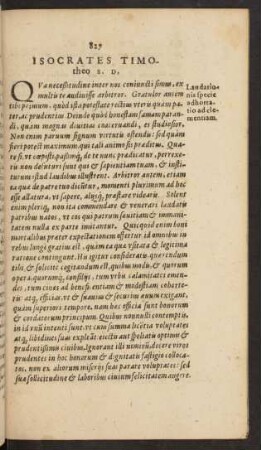 827
ISOCRATES TIMO-
theo S. D.
QVa necessitudine inter nos coniuncti simus, ex
multis te audiuisse arbitror. Gratulor autem
tibi primum, quòd ista potestate rectius uteris quàm pa-
ter, ac prudentius. Deinde quòd honestam famam paran-
di, quàm magnas diuitias coaceruandi, es studiosior.
Non enim paruum signum uirtutis ostendis: sed quàm
fieri potest maximum, qui tali animo sis præditus. Qua-
re si, ut cœpisti
ron deerunt qui tuam, et in-
stitutum istud laudibus illustrent. Arbitror autem, etiam
ea quæ de patre tuo dicuntur, momenti plurimum ad hoc
esse allatura, ut sapere,
enim plerique, non ita commendare & uenerari laudatis
patribus natos, ut eos qui patrum sæuitiam & immani-
tatem nulla ex parte imitantur. Quicquid enim homi
ni mortalibus præter expectationem offertur ad omnibus in
rebus longè gratius est, quàm ea quæ usitata & legitima
ratione contingunt. His igitur consideratis, quærendum
tibi, & feliciter cogitandum est, quibus modis, & quorum
opera,
des, tum ciues ad beneficentiam & modestiam cohorte-
ris: atque efficias, ut & suauius & securius quàm exigant,
quàm superiore tempore. nam hæc officia sunt bonorum
& cordatorum principum. Quibus nonnulli contemptis,
in id unum intenti sunt, ut cum summa licentia uoluptates
atque libidines suas expleant,
prudentissimis ciuibus. Ignorant illi nimirum, decere uiros
prudentes in hoc honorum & dignitatis fastigio colloca-
tos, non ex aliorum miserijs suas parare uoluptates: sed
sua sollicitudine & laboribus ciuium felicitatem augere.
Laudatio-
nis specie
adhorta-
tio ad cle
mentiam.